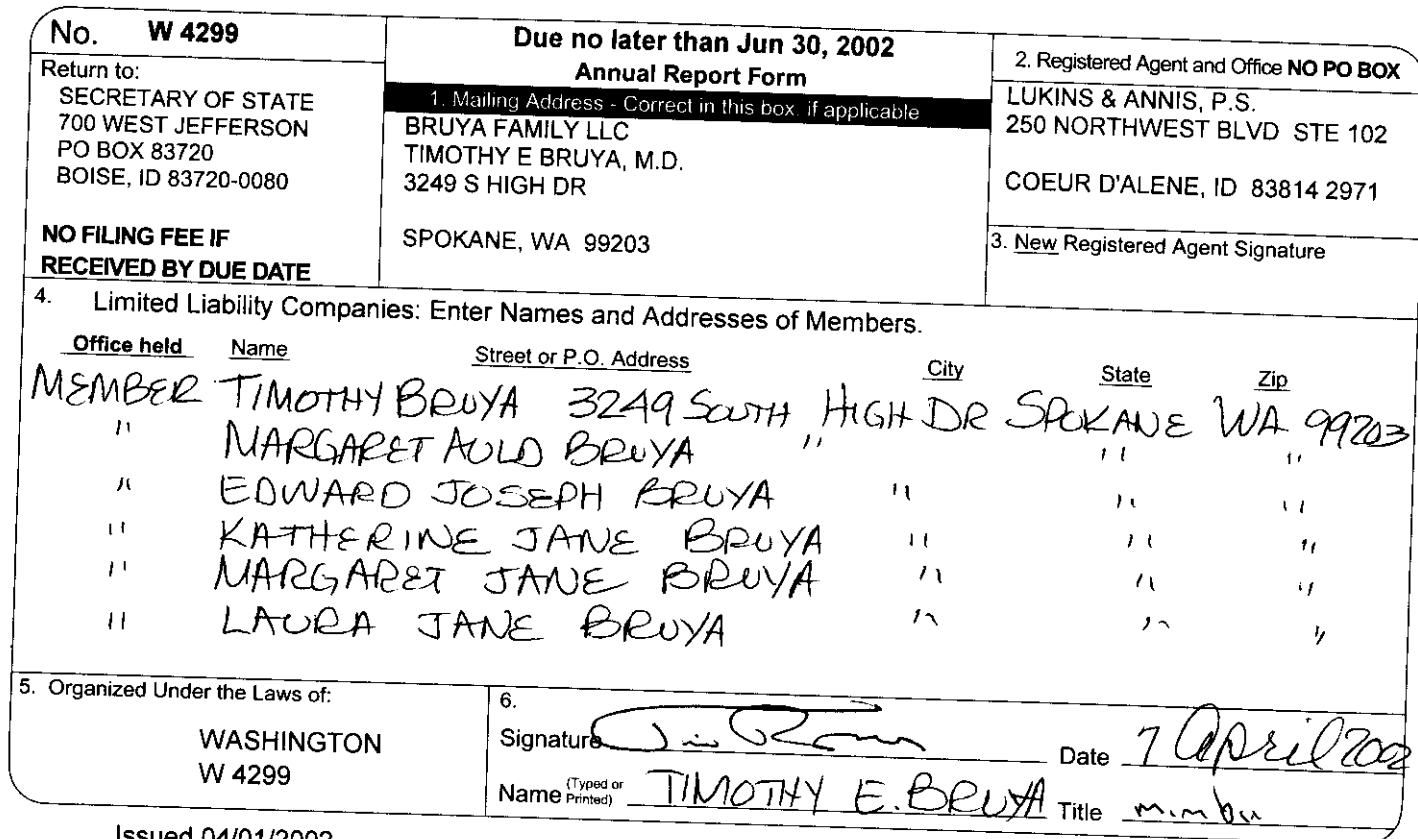 No. W 4299
Return to:
SECRETARY OF STATE
700 WEST JEFFERSON
PO BOX 83720
BOISE, ID 83720-0080
NO FILING FEE IF
RECEIVED BY DUE DATE
Due no later than Jun 30, 2002
Annual Report Form
1. Mailing Address - Correct in this box, if applicable
BRUYA FAMILY LLC
TIMOTHY E BRUYA, M.D.
3249 S HIGH DR
SPOKANE, WA 99203
2. Registered Agent and Office NO PO BOX
LUKINS & ANNIS, P.S.
250 NORTHWEST BLVD STE 102
COEUR D'ALENE, ID 83814 2971
3. New Registered Agent Signature
4. Limited Liability Companies: Enter Names and Addresses of Members.
Office held Name Street or P.O. Address City State Zip
MEMBER TIMOTHY BRUYA 3249 SOUTH HIGH DR SPOKANE WA 99203
" MARGARET AULD BRUYA " " "
" EDWARD JOSEPH BRUYA " " "
" KATHERINE JANE BRUYA " " "
" MARGARET JANE BRUYA " " "
" LAURA JANE BRUYA " " "
5. Organized Under the Laws of:
WASHINGTON
W 4299
6.
Signature Date 7 April 2002
Name (Typed or Printed) TIMOTHY E. BRUYA Title member
Issued 04/01/2002